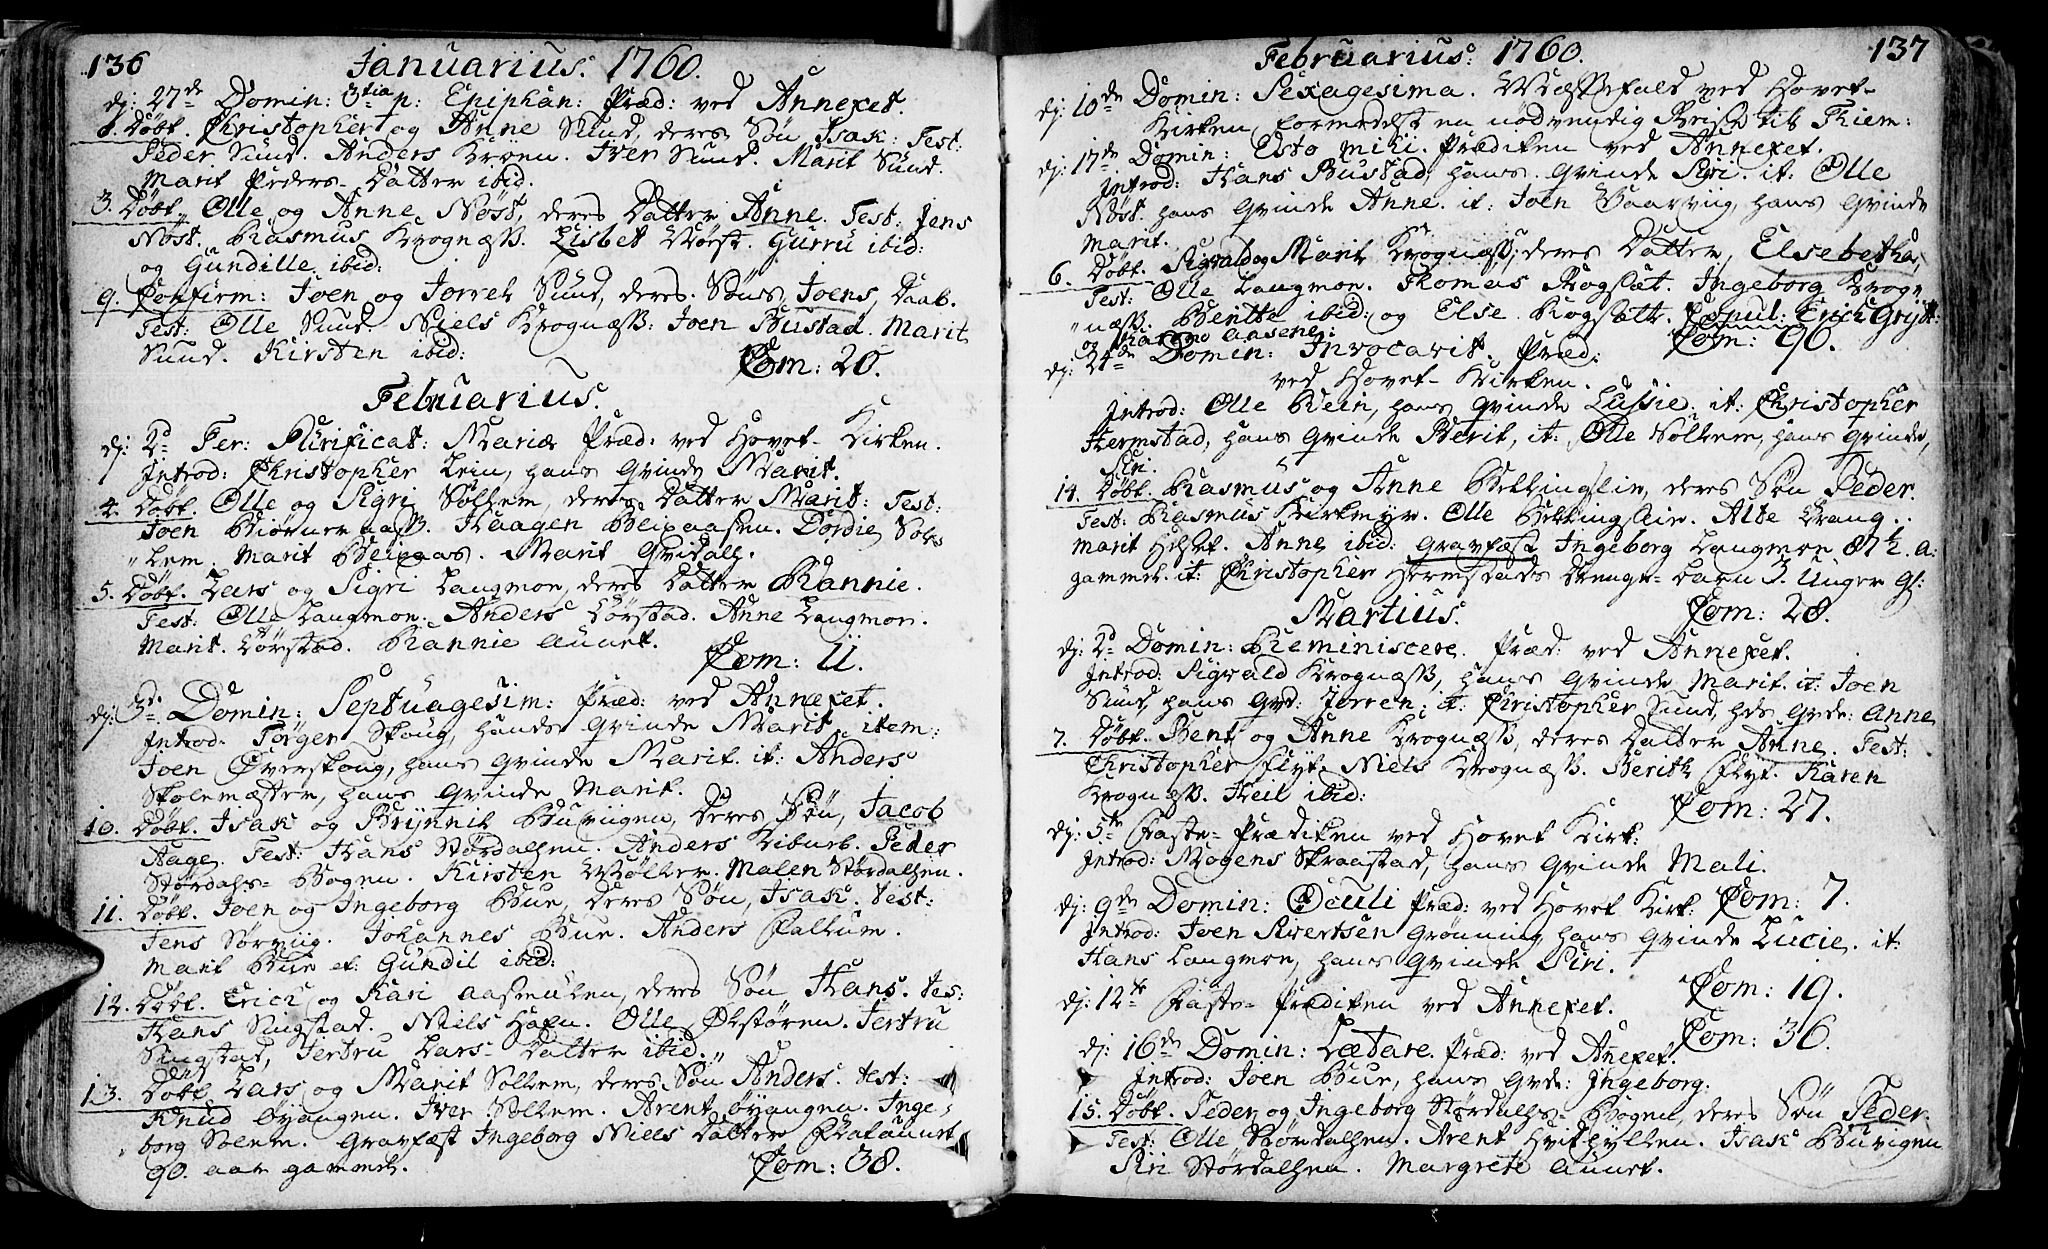 136
Januarius. 1760.
dj: 27de Domin: 3tia p: Epiphan: Præd: ved Annexet.
8. Døbt. Christopher og Anne Sund, deres Søn Isak: Test:
Peder Sund. Anders Iver Sund. Marit Sund.
Marit Peders-Datter ibid.
3. Døbt. Olle og Anne Nøst, deres Datter Anne. Test: Jens
Nøst. Rasmus Krognæss. Lisbet Gurru ibid:
og Gundille ibid:
9. Confirm: Joen og Jorret Sund, deres Søns, Joens, Daab.
Test: Olle Sund. Niels Krognæss. Joen Bustad. Marit
Sund. Kirsten ibid:
Com: 20.
Februarius.
dj: 2d Fer: Purificat: Mariæ Præd: ved Hovet-Kirken.
Introd: Christopher Lein, hans Qvinde Marit.
4. Døbt. Olle og Sigri Sollem, deres Datter Marit: Test:
Joen Biørneraass. Haagen Dordie Sol-
lem. Marit Marit
5. Døbt. Lars og Sigri Langmoe, deres Datter Rannie.
Test: Olle Langmoe. Anders Dørstad. Anne Langmoe.
Marit Dørstad. Rannie Aunet.
Com: 11.
dj: 3de Domin: Septuagesim: Præd: ved Annexet.
Introd: Tørger Skoug, hands Qvinde Marit, item:
Joen Øverskoug, hans Qvinde Marit. it: Anders
Skolemæster, hans Qvinde Marit.
10. Døbt. Isak og Brynnil Buviigen, Deres Søn, Jacob
Aage. Test: Hans Størdalsen. Anders Peder
Størdals-Bogen. Kirsten Møller. Malen Størdalsen.
11. Døbt. Joen og Ingeborg Bue, deres Søn, Isak. Test:
Jens Sørviig. Johannes Bue. Anders
Marit Bue et Gundil ibid:
12. Døbt. Erich og Kari Aasmulen, deres Søn Hans. Tes:
Hans Singstad. Niels Hafn. Olle Økstøren. Jertru
Singstad, Jertru Lars-Datter ibid.
13. Døbt Lars og Marit Sollem, deres Søn Anders. Test:
Knud Øyangen. Iver Sollem. Arent Øyangen. Inge-
borg Solem. Gravfæst Ingeborg Niels Datter
90. aar gammel.
Com: 38.
Februarius: 1760.
137
dj: 10de Domin: Sexagesima. Messefald ved Hovet-
Kirken, formedelst en nødvendig Reise til Thiem:
dj: 17de Domin: Esto mihi. Prædiken ved Annexet.
Introd: Hans Bustad, hans Qvinde Siri. it: Olle
Nøst. hans Qvinde Anne. it: Joen Vaarviig, hans Qvinde
Marit.
6. Døbt. Sigvald og Marit Krognæss, deres Datter, Elsebetha,
Test: Olle Langmoe. Thomas Rogstat. Ingeborg Krog-
næss. Benthe ibid: og Else Rogstatt. Copul: Erich Grytt:
og Karen Aasene:
Com: 90.
dj: 24de Domin: Invocavit. Præd:
ved Hovet-Kirken.
Introd: Olle Hein, hans Qvinde Lussie. it: Christopher
Hermstad, hans Qvinde Berit, it: Olle Sollem, hans Qvinde,
Siri.
14. Døbt. Rasmus og Anne Bellingslie, deres Søn Peder.
Test: Rasmus Kirkmyr. Olle Bellingslie. Alte
Marit Anne ibid: Gravfæst Ingeborg Langmoe 87½. a:
gammel. it: Christopher Hermstads Drenge-Barn 3. Uger gl:
Martius.
Com: 28.
dj: 2d Domin: Reminiscere. Præd: ved Annexet.
Introd: Sigvald Krognæss, hans Qvinde Marit. it: Joen
Sund, hans Qvd: Jorren: it: Christopher Sund, hds Qvde: Anne
7. Døbt. Bent og Anne Krognæss, deres Datter Anne. Test:
Christopher Flyt. Niels Krognæss. Berith Flyt. Karen
Krognæss. ibid:
Com: 27.
dj: 5te Faste-Prædiken ved Hovet Kirk:
Introd: Mogens Skraastad, hans Qvinde Mali.
dj: 9de Domin: Oculi Præd: ved Hovet Kirk: Com: 7.
Introd: Joen Sivertsen Grønning, hans Qvinde Lucie. it:
Hans Langmoe, hans Qvinde Siri.
Com: 19.
dj: 12te Faste-Prædiken ved Annexet.
Com: 36.
dj: 16de Domin: Lætare. Præd: ved Anexet.
Introd: Joen Bue, hans Qvde: Ingeborg.
15. Døbt. Peder og Ingeborg Størdals-Bogen, deres Søn Peder.
Test: Olle Størdalsen. Arent Isak Buvigen
Siri Størdalsen. Margrete Aunet.